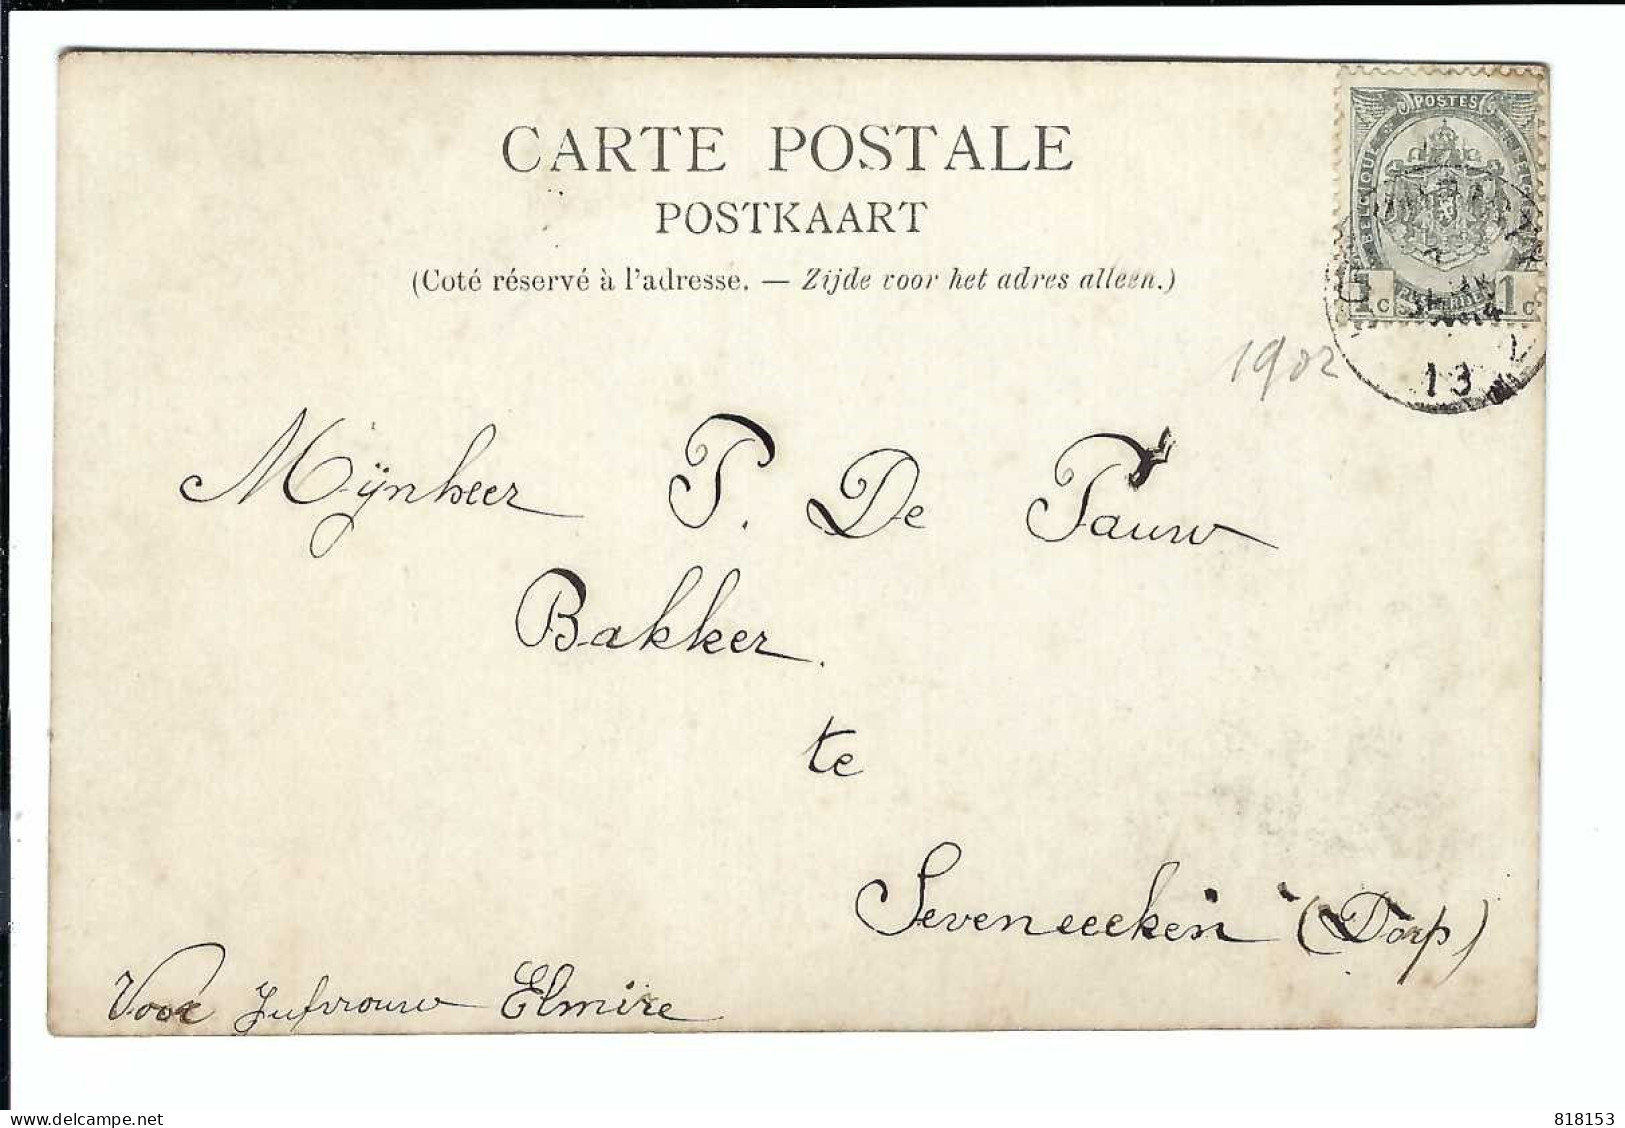 CARTE POSTALE
POSTKAART
(Coté réservé à l'adresse. — Zijde voor het adres alleen.)
POSTES
BELGIQUE
1c 1c
13
1902
Mijnheer P. De Pauw
Bakker.
te
Seveneecken (Dorp)
Voor Jufvrouw Elmire
delcampe.net
themarcske
818153